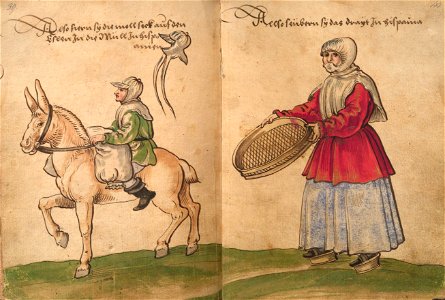 Also fiern sy die mell seck auf den
Eseln In die Mull In hispa
anien
Also seubern sy das drayt In hispania